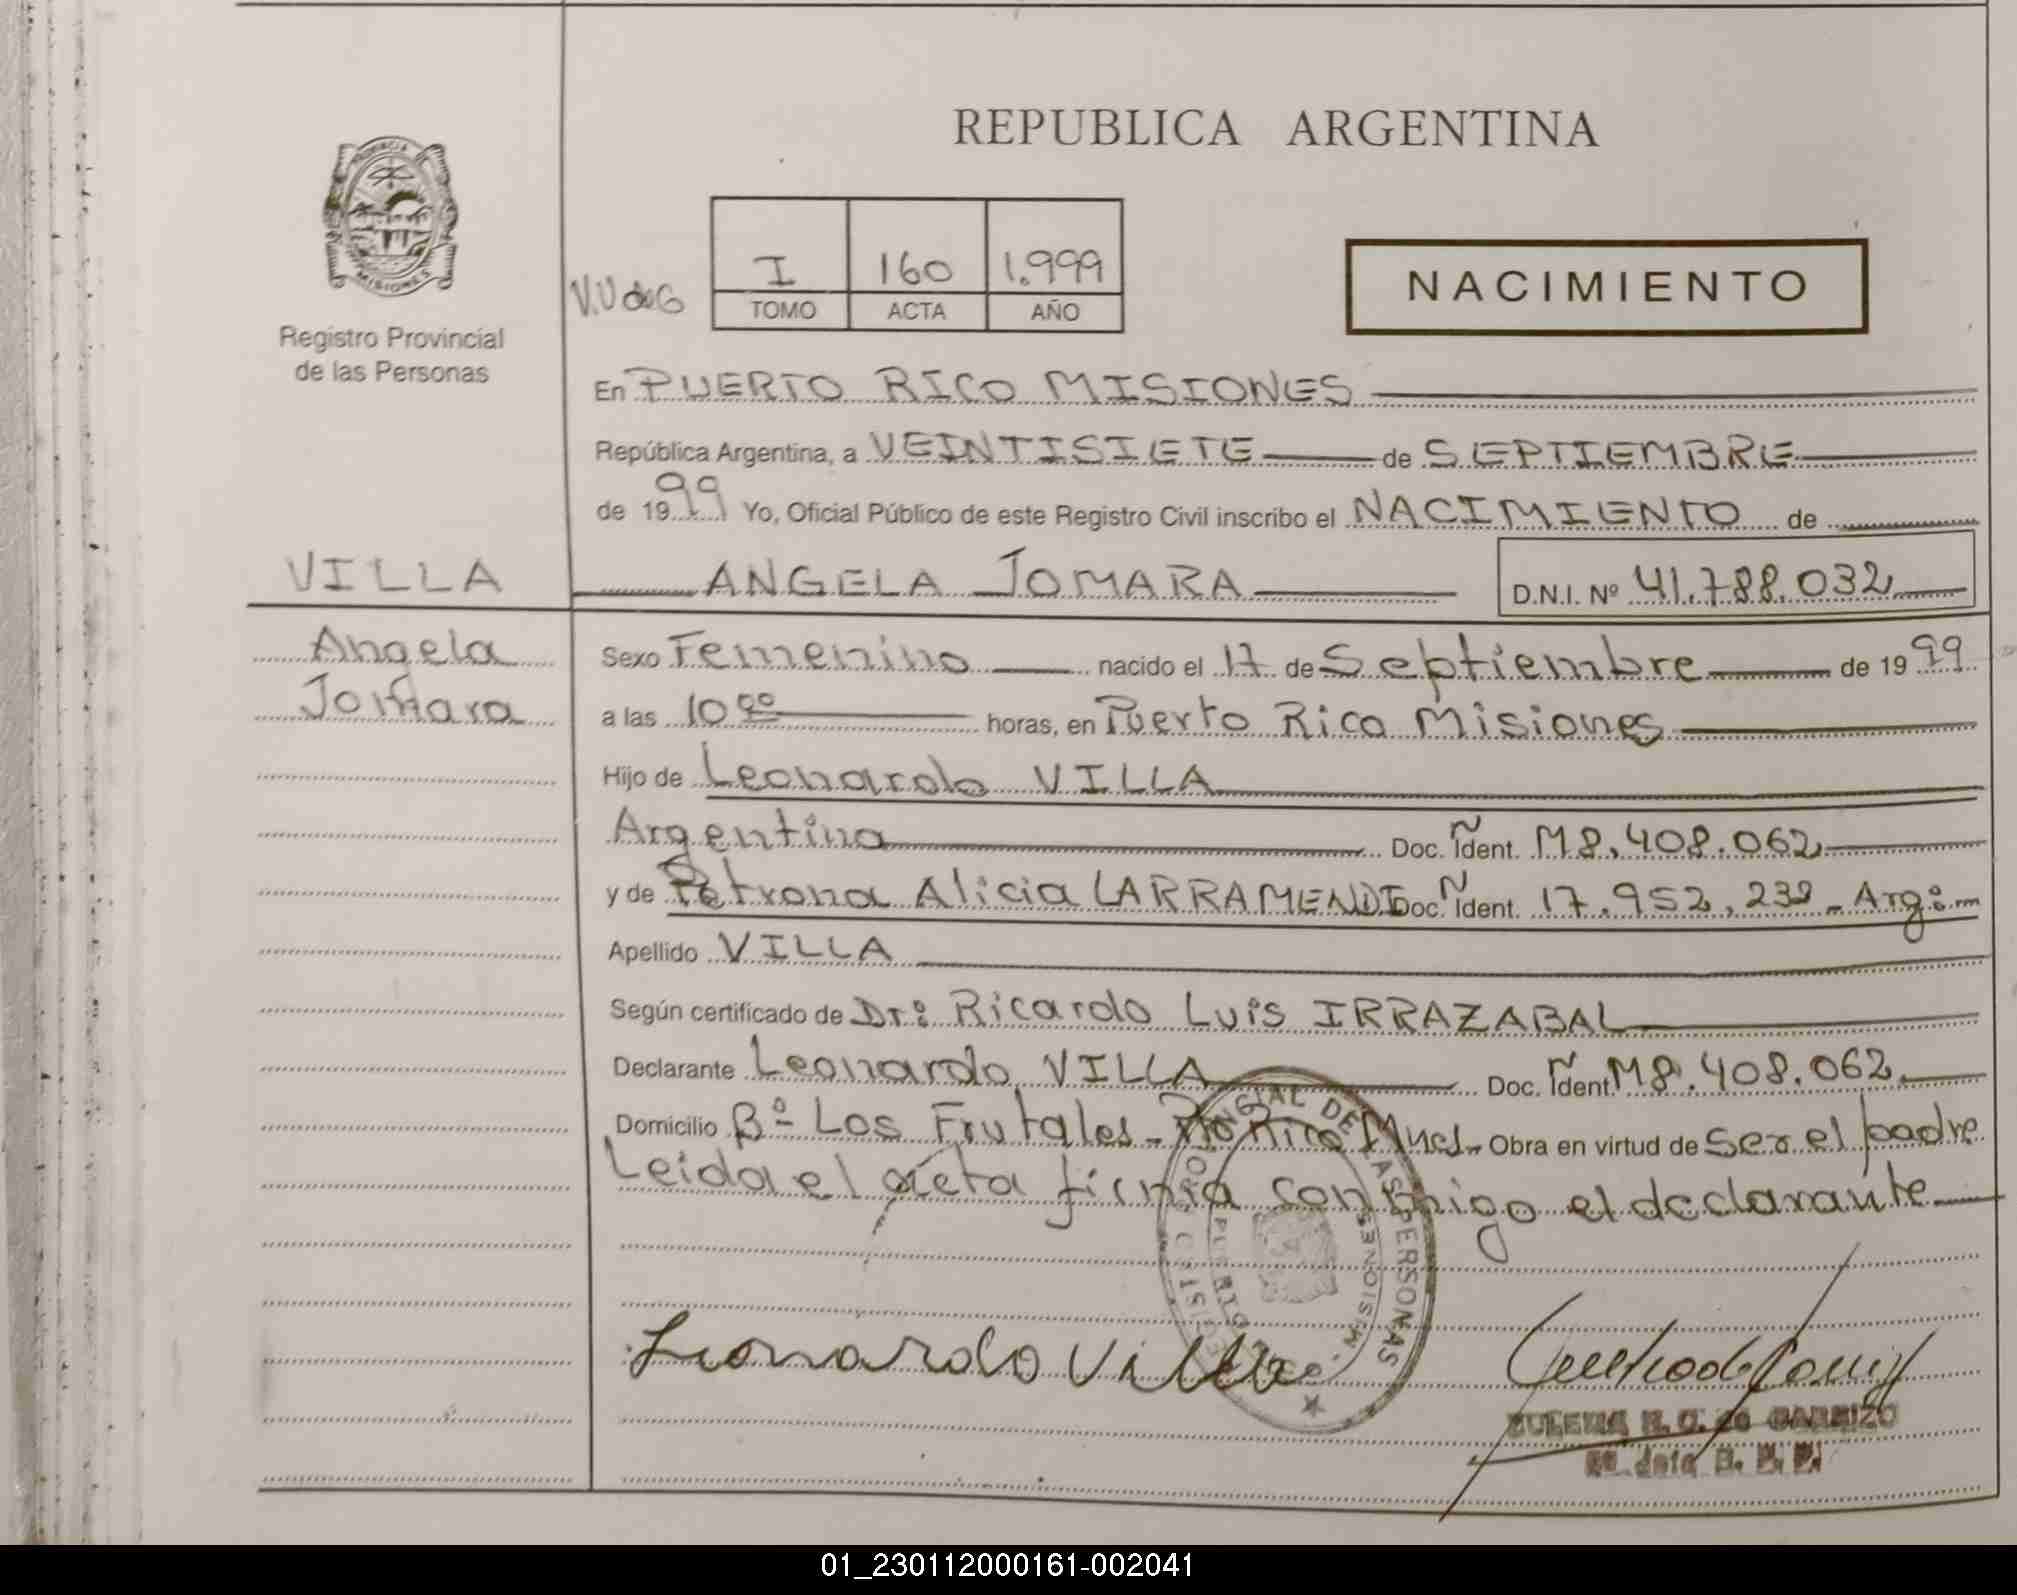 REPUBLICA ARGENTINA
PROVINCIA
MISIONES
Registro Provincial
de las Personas
V.U de G
I 160 1.999
TOMO ACTA AÑO
NACIMIENTO
En PUERTO RICO MISIONES
República Argentina, a VEINTISIETE de SEPTIEMBRE
de 1999 Yo, Oficial Público de este Registro Civil inscribo el NACIMIENTO de
VILLA
ANGELA JOMARA D.N.I. Nº 41.788.032
Angela
Jomara
Sexo Femenino nacido el 17 de Septiembre de 1999
a las 10 00 horas, en Puerto Rico Misiones
Hijo de Leonardo VILLA
Argentina Doc. Ident. M8.408.062
y de Petrona Alicia LARRAMENDI Doc. Ident. 17.952.232 - Arg:
Apellido VILLA
Según certificado de Dr: Ricardo Luis IRRAZABAL
Declarante Leonardo VILLA Doc. Ident. M8.408.062
Domicilio Bº Los Frutales - Pto Rico Mnes - Obra en virtud de ser el padre
Leida el acta firma conmigo el declarante
PROVINCIAL DE LAS PERSONAS
PUERTO RICO - MISIONES
Leonardo Villa
01_230112000161-002041